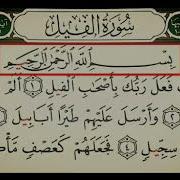 سُورَةُ الْفِيلِ
بِسْمِ اللَّهِ الرَّحْمَٰنِ الرَّحِيمِ
فَعَلَ رَبُّكَ بِأَصْحَٰبِ الْفِيلِ ١ أَلَمْ
٢ وَأَرْسَلَ عَلَيْهِمْ طَيْرًا أَبَابِيلَ
سِجِّيلٍ ٤ فَجَعَلَهُمْ كَعَصْفٍ